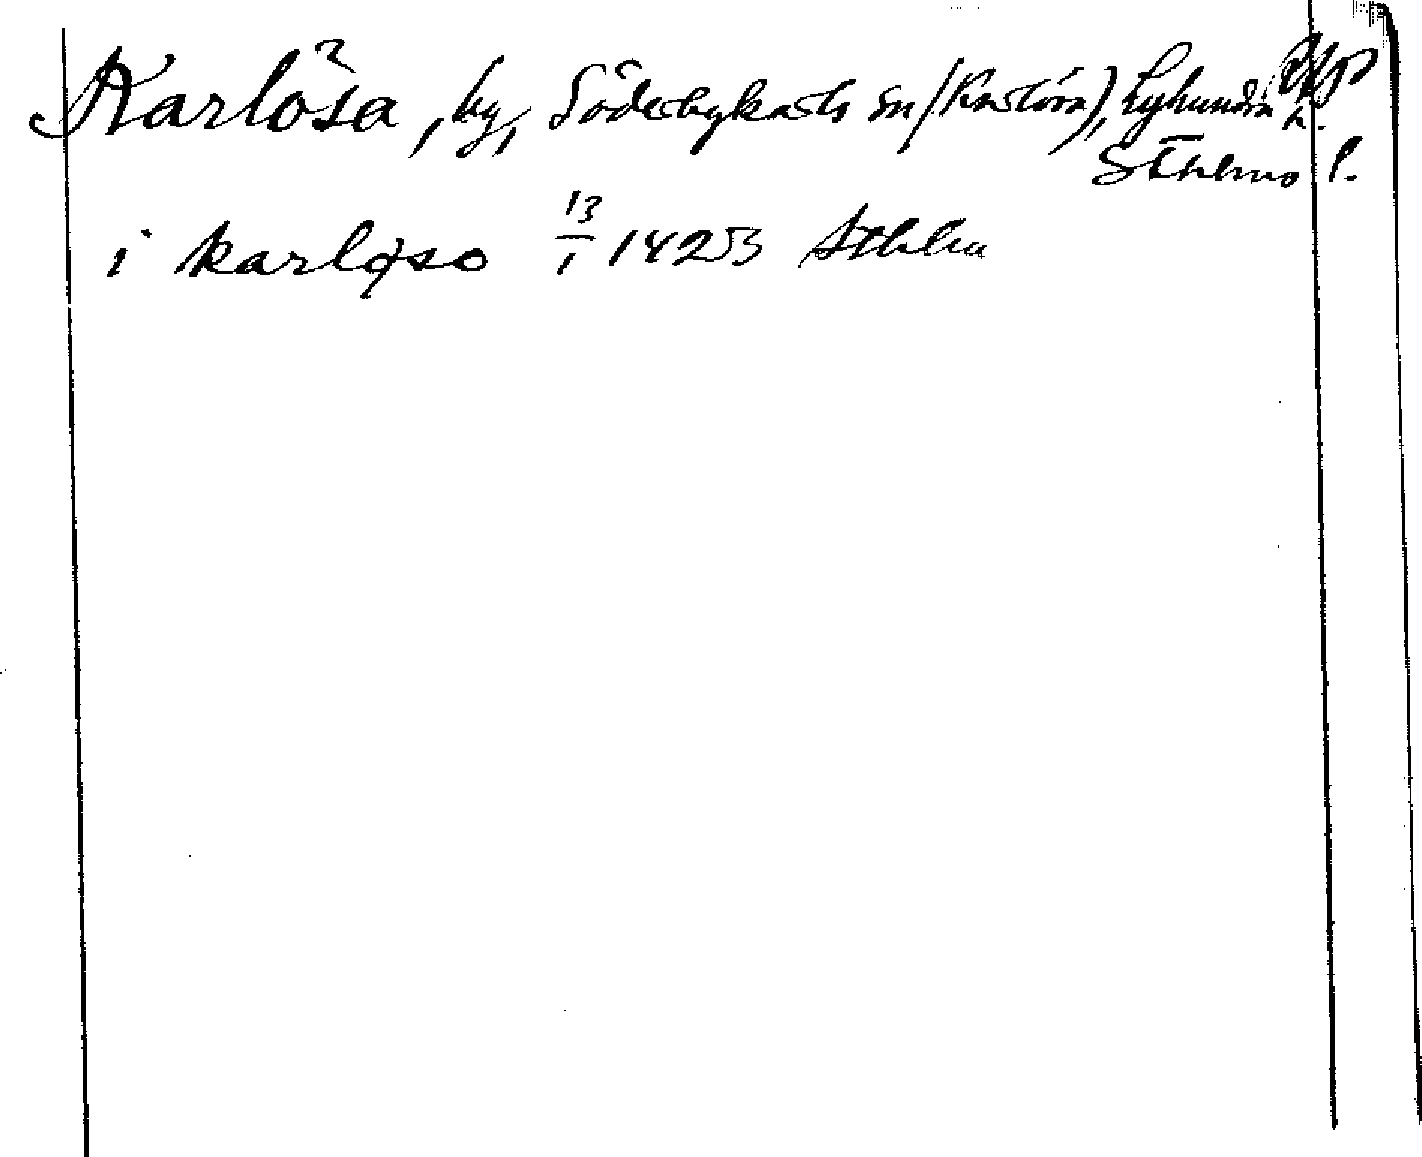 Karlösa, by, Söderbykarls sn (Karlösa), Lyhundra h. Upps
Sthlms l.
i karløso 13/1 1423 Sthlm